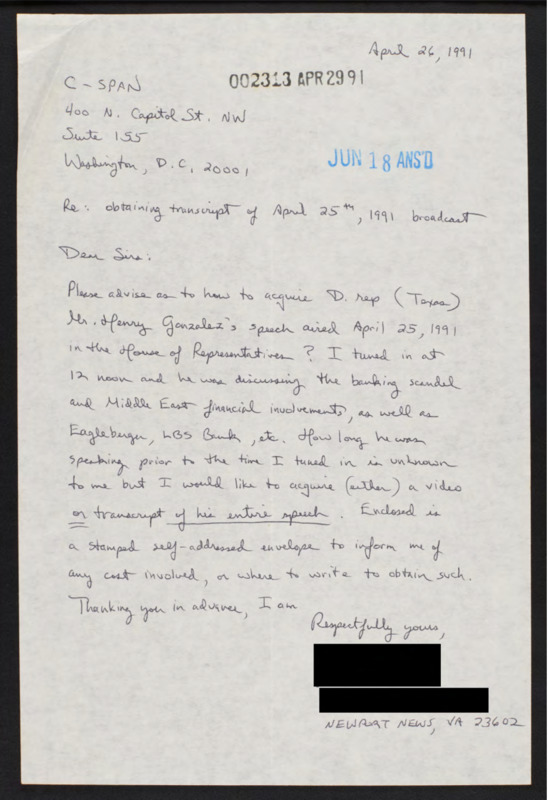 April 26, 1991
C-SPAN
002313 APR 29 91
400 N. Capitol St. NW
Suite 155
Washington, D.C. 20001
JUN 18 ANS'D
Re: obtaining transcript of April 25th, 1991 broadcast
Dear Sirs:
Please advise as to how to acquire D. rep (Texas)
Mr. Henry Gonzalez's speech aired April 25, 1991
in the House of Representatives? I tuned in at
12 noon and he was discussing the banking scandal
and Middle East financial involvements, as well as
Eagleberger, LBS Bank, etc. How long he was
speaking prior to the time I tuned in is unknown
to me but I would like to acquire (either) a video
or transcript of his entire speech. Enclosed is
a stamped self-addressed envelope to inform me of
any cost involved, or where to write to obtain such.
Thanking you in advance, I am
Respectfully yours,
NEWPORT NEWS, VA 23602